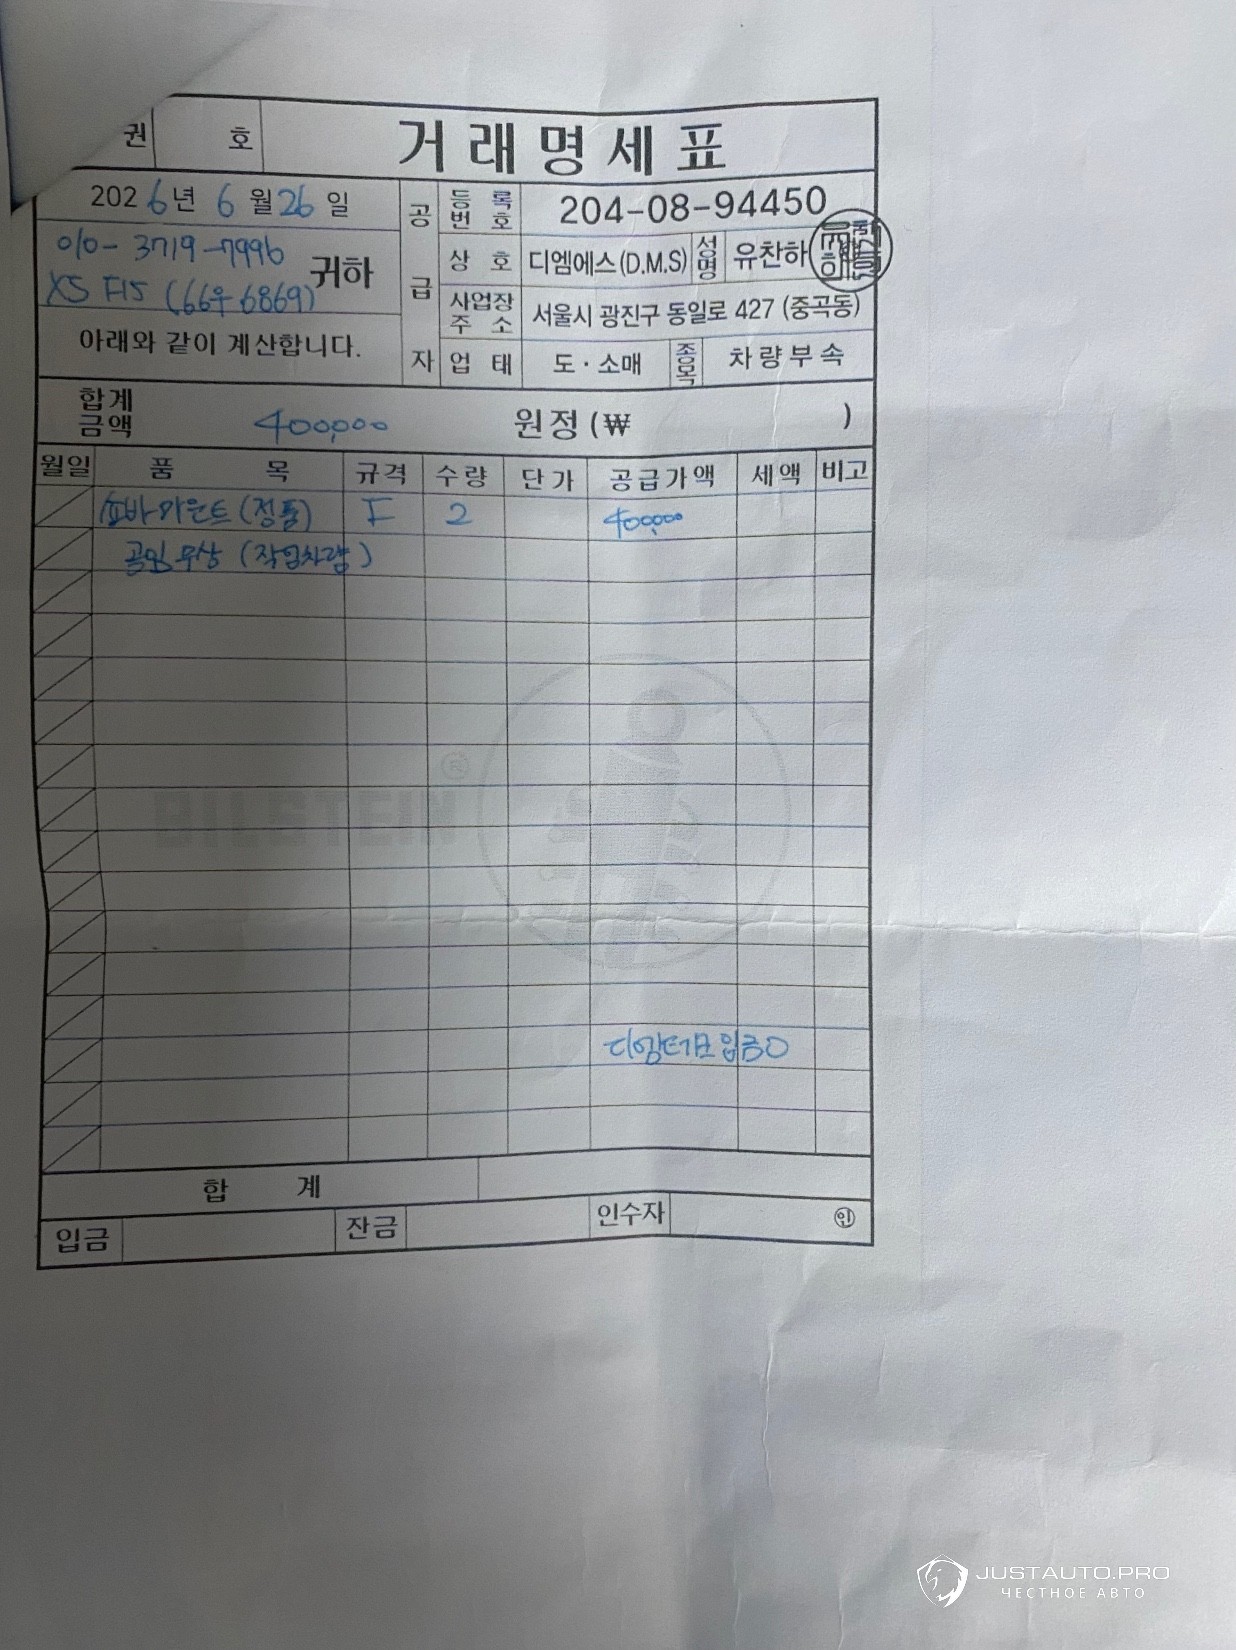 권 호 거래명세표
2026년 6월 26일
010-3719-7996
X5 F15 (66우6869) 귀하
아래와 같이 계산합니다.
공급자
등록번호 204-08-94450
상호 디엠에스(D.M.S) 성명 유찬하
사업장주소 서울시 광진구 동일로 427 (중곡동)
업태 도·소매 종목 차량부속
합계금액 400,000 원정 (₩ )
월일 품목 규격 수량 단가 공급가액 세액 비고
쇼바마운트(정품) F 2 400,000
공임무상 (작업차량)
BILSTEIN ®
입금O
합계
입금 잔금 인수자 ㊞
JUSTAUTO.PRO
ЧЕСТНОЕ АВТО